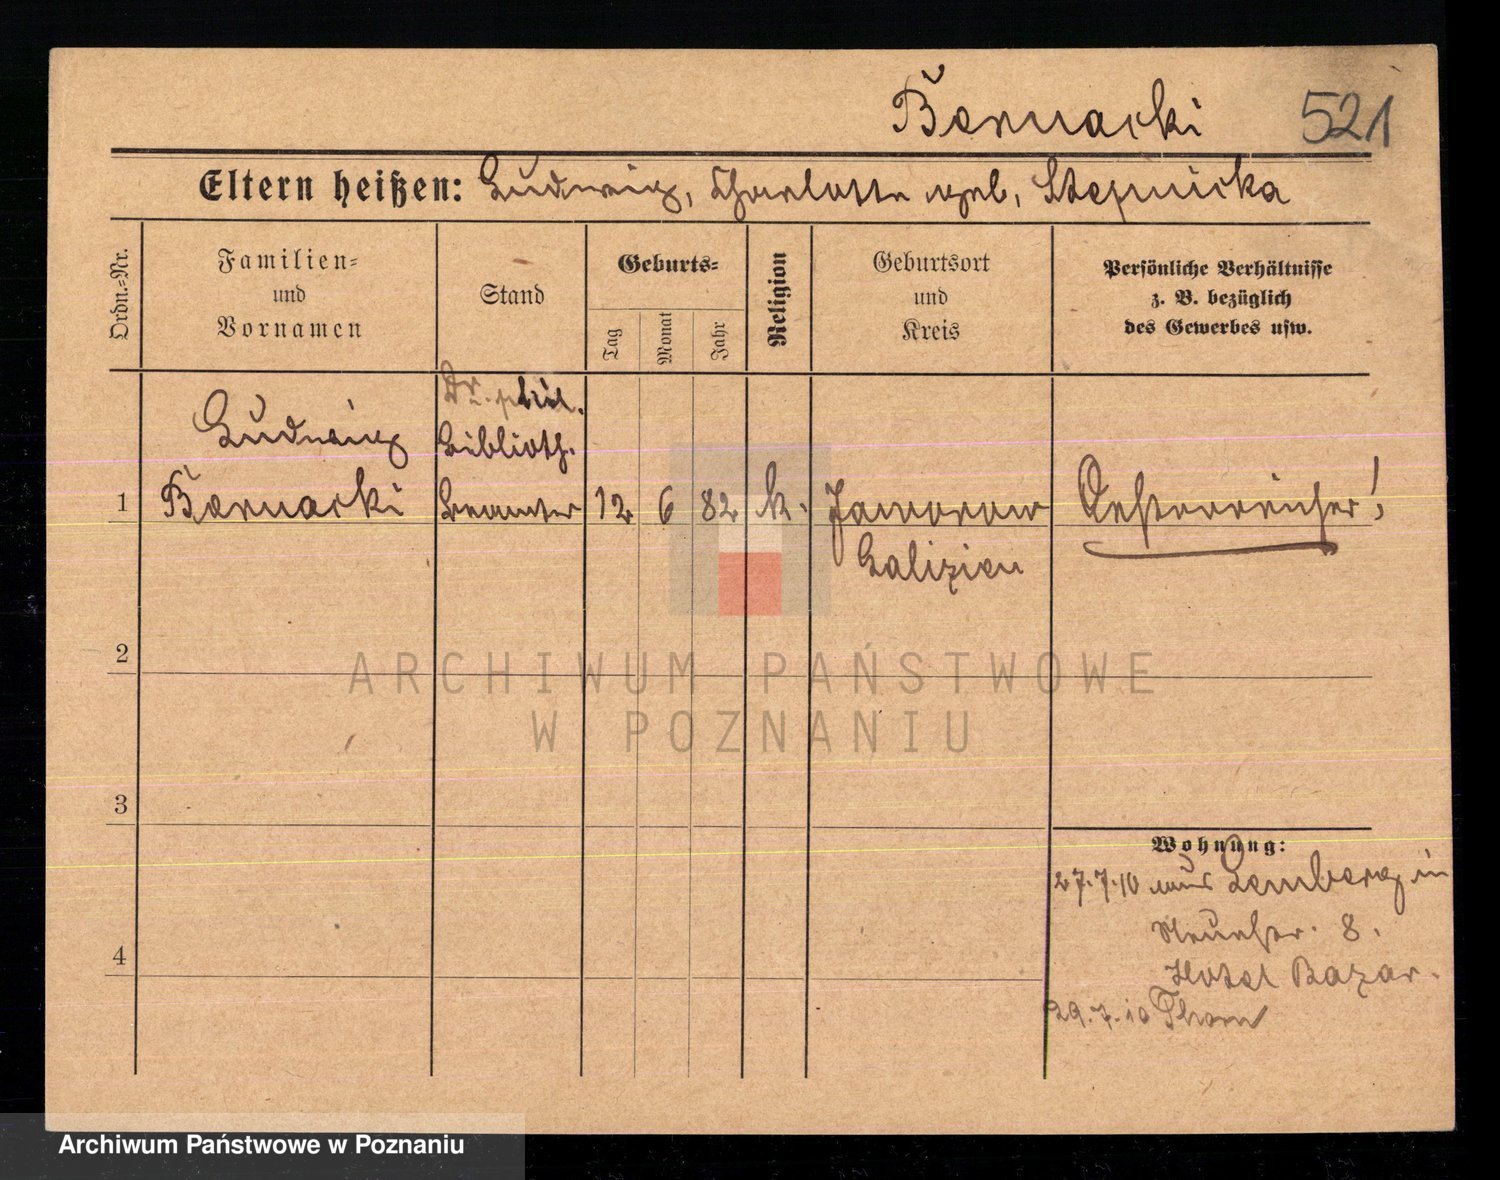 Bernacki 521
Eltern heißen: Ludwig, Charlotte geb. Stepnicka
Ordn.-Nr.
Familien-
und
Vornamen
Stand
Geburts-
Tag
Monat
Jahr
Religion
Geburtsort
und
Kreis
Persönliche Verhältnisse
z. B. bezüglich
des Gewerbes usw.
Dr. phil.
Ludwig
Biblioth.
1 Bernacki Beamter 12 6 82 k. Jaworow Oesterreicher!
Galizien
2
3
4
Wohnung:
27.7.10 aus Lemberg in
Neuestr. 8.
Hotel Bazar.
29.7.10 Thorn
ARCHIWUM PAŃSTWOWE
W POZNANIU
Archiwum Państwowe w Poznaniu